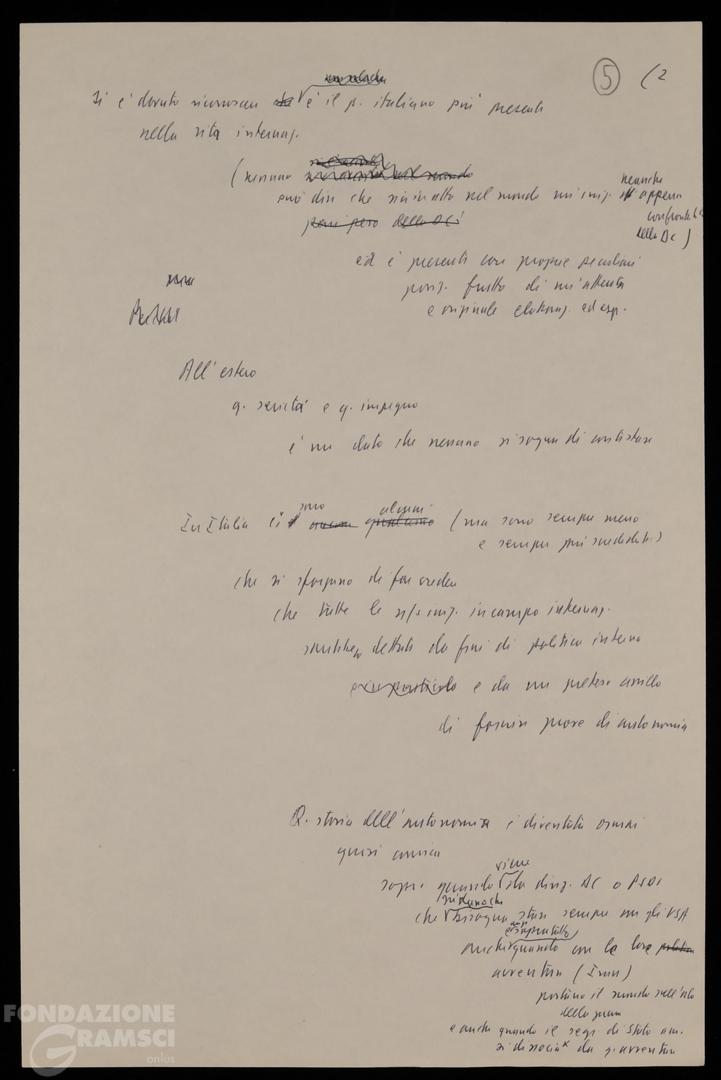 5 (2
Si è dovuto riconoscere è il p. italiano più presente
nella vita internaz.
(nessuno
può dire che sia in atto nel mondo un'iniz. neanche appena
confrontabile
della DC)
ed è presente con proprie peculiari
posiz. frutto di un'attenta
e originale elaboraz. ed esp.
All'estero
q. serietà e q. impegno
è un dato che nessuno si sogna di contestare
sono alcuni
In Italia ci (ma sono sempre meno
e sempre più screditati)
che si sforzano di far credere
che tutte le ns/ iniz. in campo internaz.
sarebbero dettate da fini di politica interna
e da un preteso assillo
di fornire prove di autonomia
Q. storia dell'autonomia è diventata ormai
quasi comica
viene
sopr. quando da dirig. DC o PSDI
che bisogna stare sempre con gli USA
soprattutto
anche quando con le loro
avventure (Iran)
portano il mondo sull'orlo
della guerra
e anche quando il segr. di Stato am.
si dissocia da q. avventure
FONDAZIONE
GRAMSCI
onlus